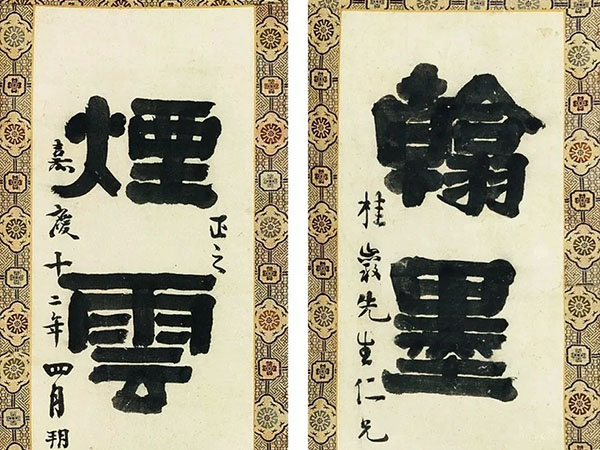 翰墨
桂巖先生仁兄
正之
煙雲
嘉慶十二年四月